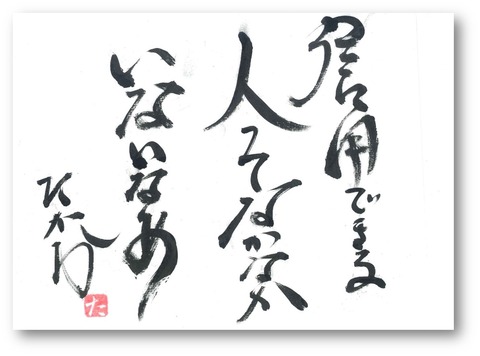 信用できる
人てなかなか
いないなあ
た